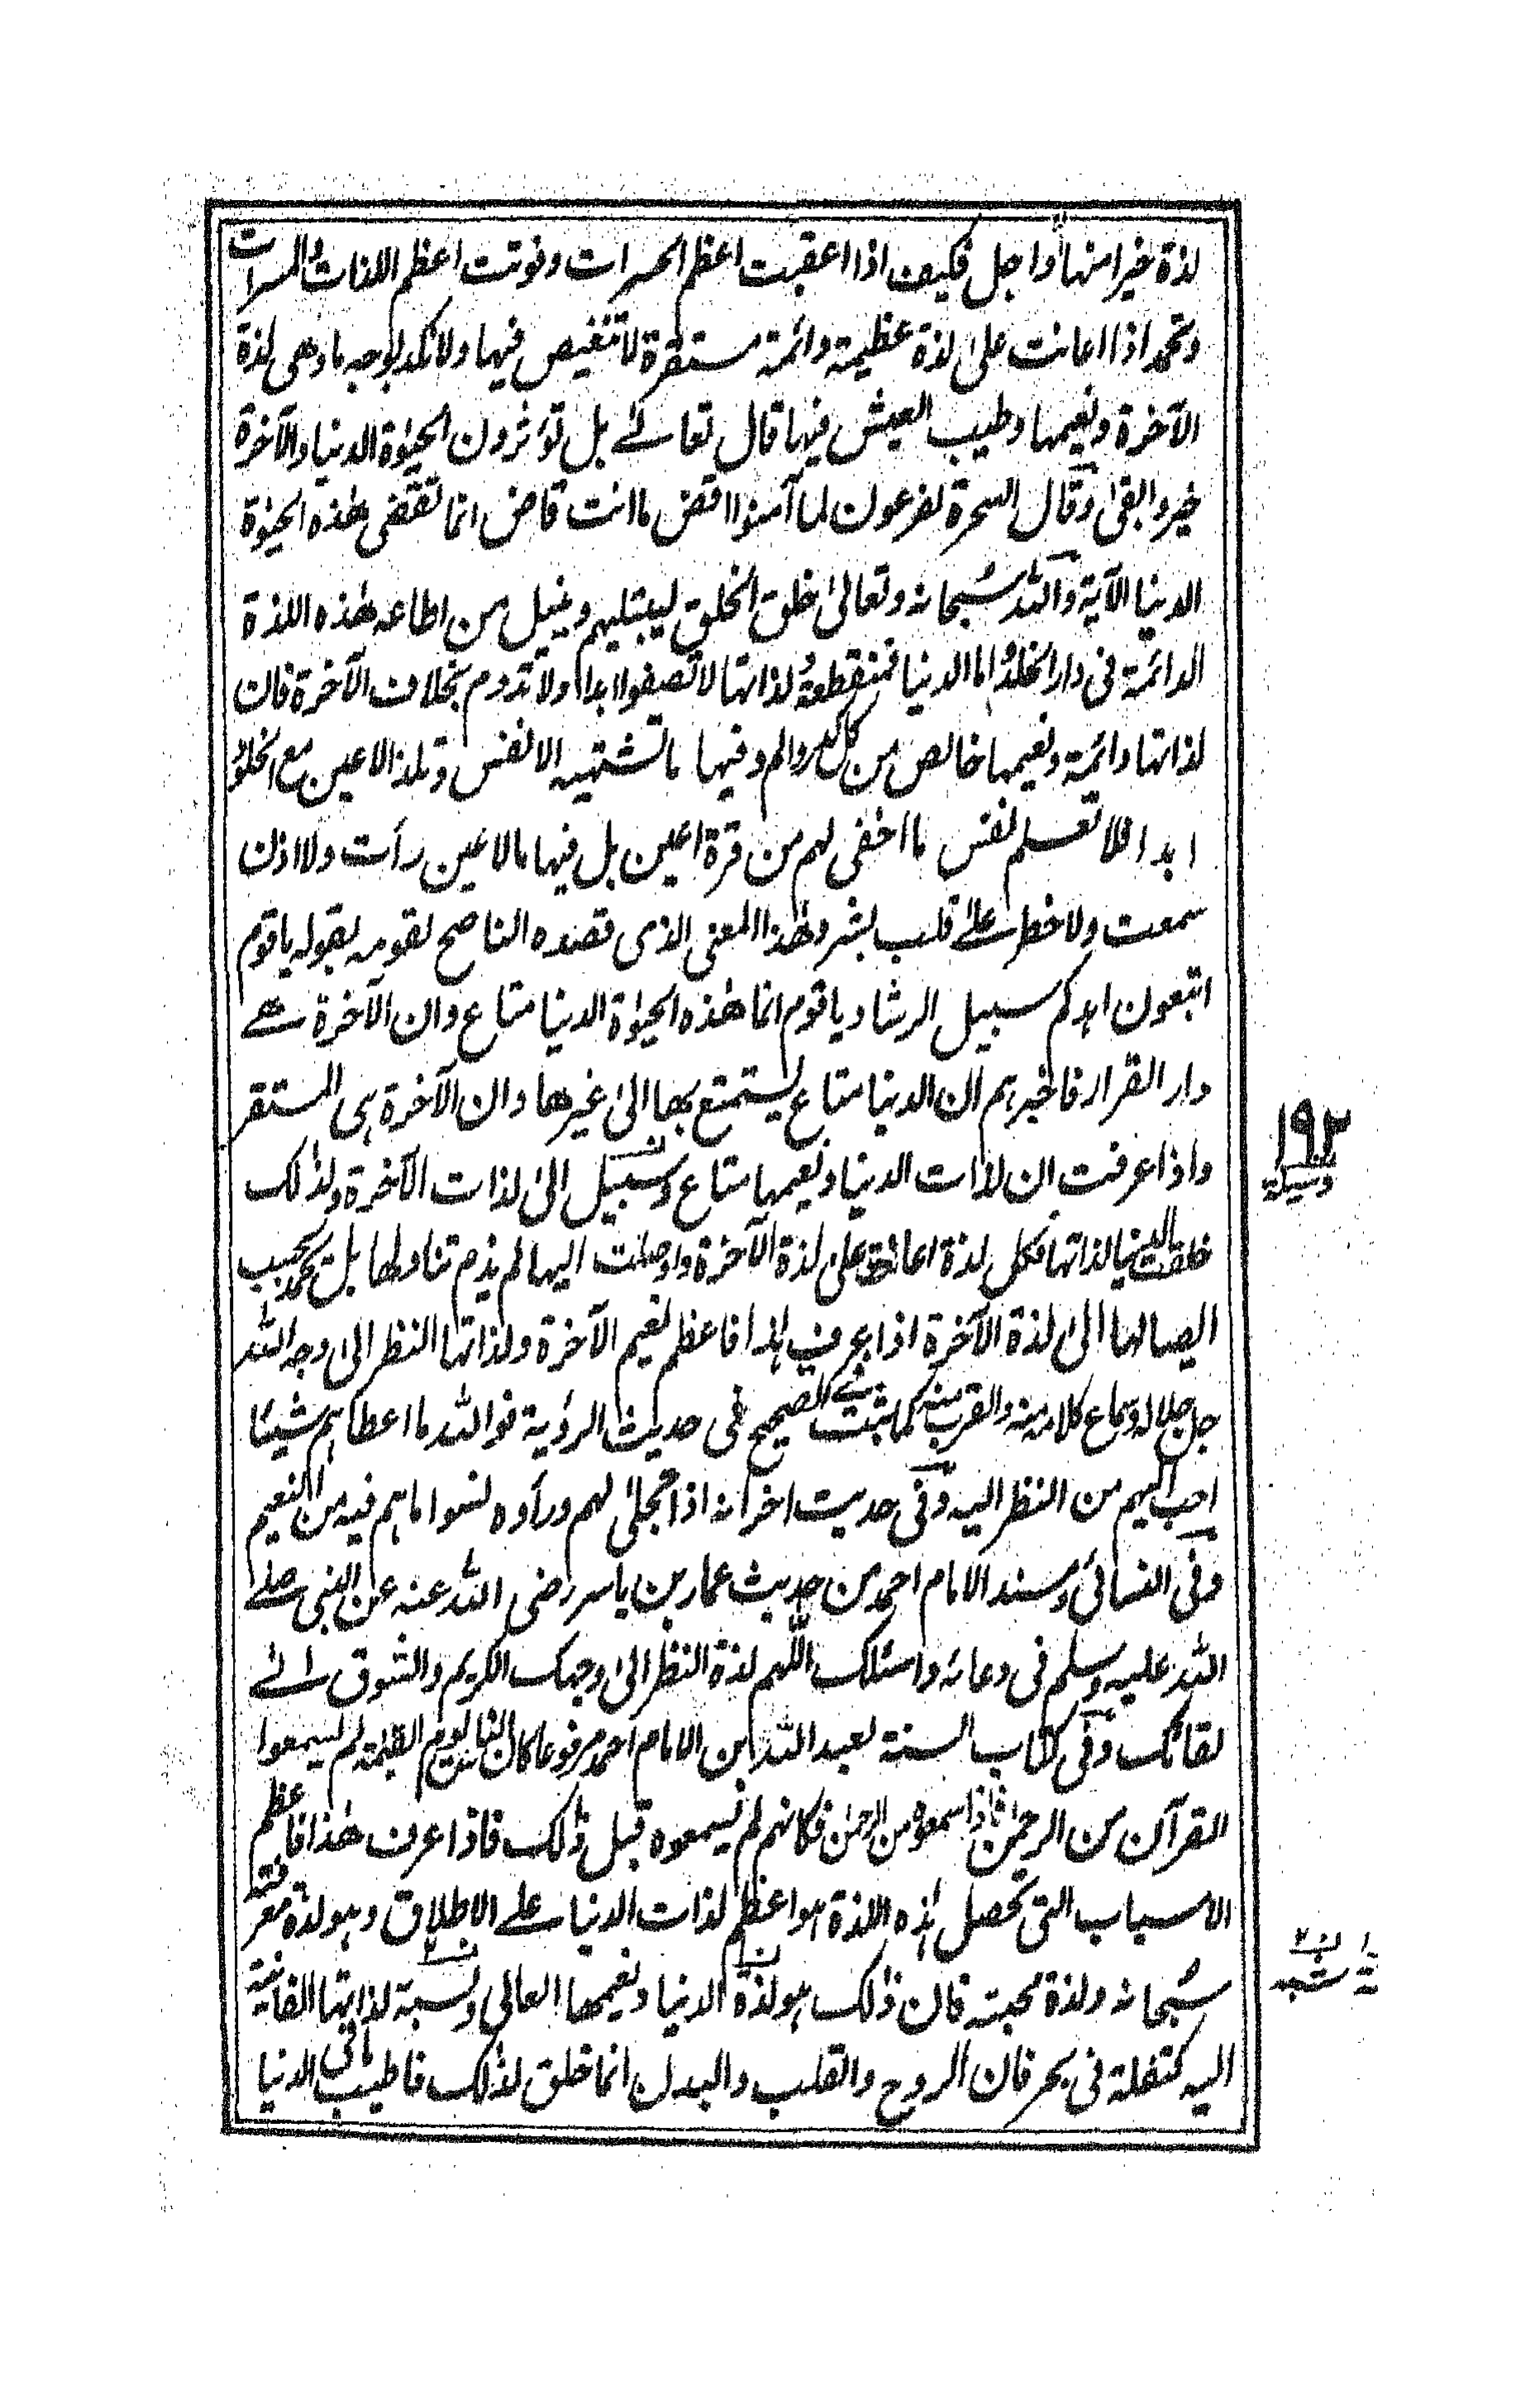 لذة خيرا منها واجل فكيف اذا اعقبت اعظم الحسرات وفوتت اعظم اللذات والمسرات
وتحمد اذا اعانت على لذة عظيمة دائمة مستقرة لا تنغيص فيها ولا نكد بوجه ما وهى لذة
الآخرة ونعيمها وطيب العيش فيها قال تعالى بل تؤثرون الحيوة الدنيا والآخرة
خير وابقى وقال السحرة لفرعون لما آمنوا اقض ما انت قاض انما تقضى هذه الحيوة
الدنيا الآية والله سبحانه وتعالى خلق الخلق ليبتليهم وينيل من اطاعه هذه اللذة
الدائمة فى دار الخلد اما الدنيا فمنقطعة لذاتها لا تصفوا ابدا ولا تدوم بخلاف الآخرة فان
لذاتها دائمة ونعيمها خالص من كل كدر والم وفيها ما تشتهيه الانفس وتلذ الاعين مع الخلود
ابدا فلا تعلم نفس ما اخفى لهم من قرة اعين بل فيها ما لا عين رأت ولا اذن
سمعت ولا خطر على قلب بشر وهذا المعنى الذى قصده الناصح لقومه بقوله يا قوم
اتبعون اهدكم سبيل الرشاد يا قوم انما هذه الحيوة الدنيا متاع وان الآخرة هى
دار القرار فاخبرهم ان الدنيا متاع يستمتع بها الى غيرها وان الآخرة هى المستقر
واذا عرفت ان لذات الدنيا ونعيمها متاع وسبيل الى لذات الآخرة ولذلك
خلقت الدنيا لذاتها فكل لذة اعانت على لذة الآخرة واوصلت اليها لم يذم تناولها بل يحمد بحسب
ايصالها الى لذة الآخرة اذا عرف هذا فاعظم نعيم الآخرة ولذاتها النظر الى وجه الله
جل جلاله وسماع كلامه منه والقرب منه كما ثبت فى الصحيح فى حديث الرؤية فوالله ما اعطاهم شيئا
احب اليهم من النظر اليه وفى حديث اخر انه اذا تجلى لهم ورأوه نسوا ما هم فيه من النعيم
وفى النسائى ومسند الامام احمد من حديث عمار بن ياسر رضى الله عنه عن النبى صلى
الله عليه وسلم فى دعائه واسئلك اللهم لذة النظر الى وجهك الكريم والشوق الى
لقائك وفى كتاب السنة لعبد الله ابن الامام احمد مرفوعا كان الناس يوم القيمة لم يسمعوا
القرآن من الرحمن فاذا سمعوه من الرحمن فكانهم لم يسمعوه قبل ذلك فاذا عرف هذا فاعظم
الاسباب التى تحصل هذه اللذة هو اعظم لذات الدنيا على الاطلاق وهو لذة معرفته
سبحانه ولذة محبته فان ذلك هو لذة الدنيا ونعيمها العالى ونسبة لذاتها الفانية
اليه كتفلة فى بحر فان الروح والقلب والبدن انما خلق لذلك فاطيب ما فى الدنيا
١٩٢
وسيلة